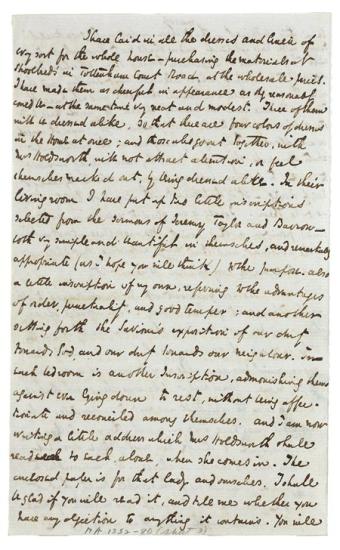 I have laid in all the dresses and linen of
every sort for the whole house – purchasing the materials at
Shoolbred's in Tottenham Court Road, at the wholesale prices.
I have made them as cheerful in appearance as they reasonably
could be – at the same time very neat and modest. Three of them
will be dressed alike, so that there are four colors of dresses
in the House at once; and those who go out together, with
Mrs Holdsworth will not attract attention, or feel
themselves marked out, by being dressed alike. In their
living room I have put up two little inscriptions
selected from the sermons of Jeremy Taylor and Barrow –
both very simple and beautiful in themselves, and remarkably
appropriate (as I hope you will think) to the purpose. also
a little inscription of my own, referring to the advantages
of order, punctuality, and good temper; and another
setting forth the Saviour's exposition of our duty
towards God, and our duty towards our neighbour. In
each bedroom is another Inscription, admonishing them
against ever lying down to rest, without being affec-
tionate and reconciled among themselves. and I am now
writing a little address which Mrs Holdsworth shall
read to each, alone, when she comes in. The
enclosed paper is for that lady and ourselves. I shall
be glad if you will read it, and tell me whether you
have any objection to anything it contains. You will
MA 1352-80